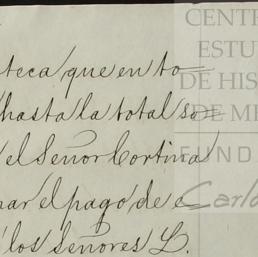 teca que en to
hasta la total so
el Señor Cortina
nar el pago de e
los Señores L.
CENTR
ESTU
DE HIS
DE ME
FUND
Carlo